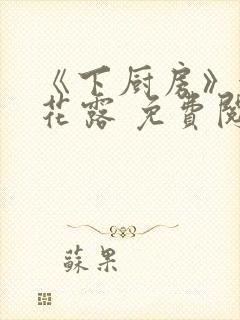 《下厨房》
花露 免費閱
蘇果